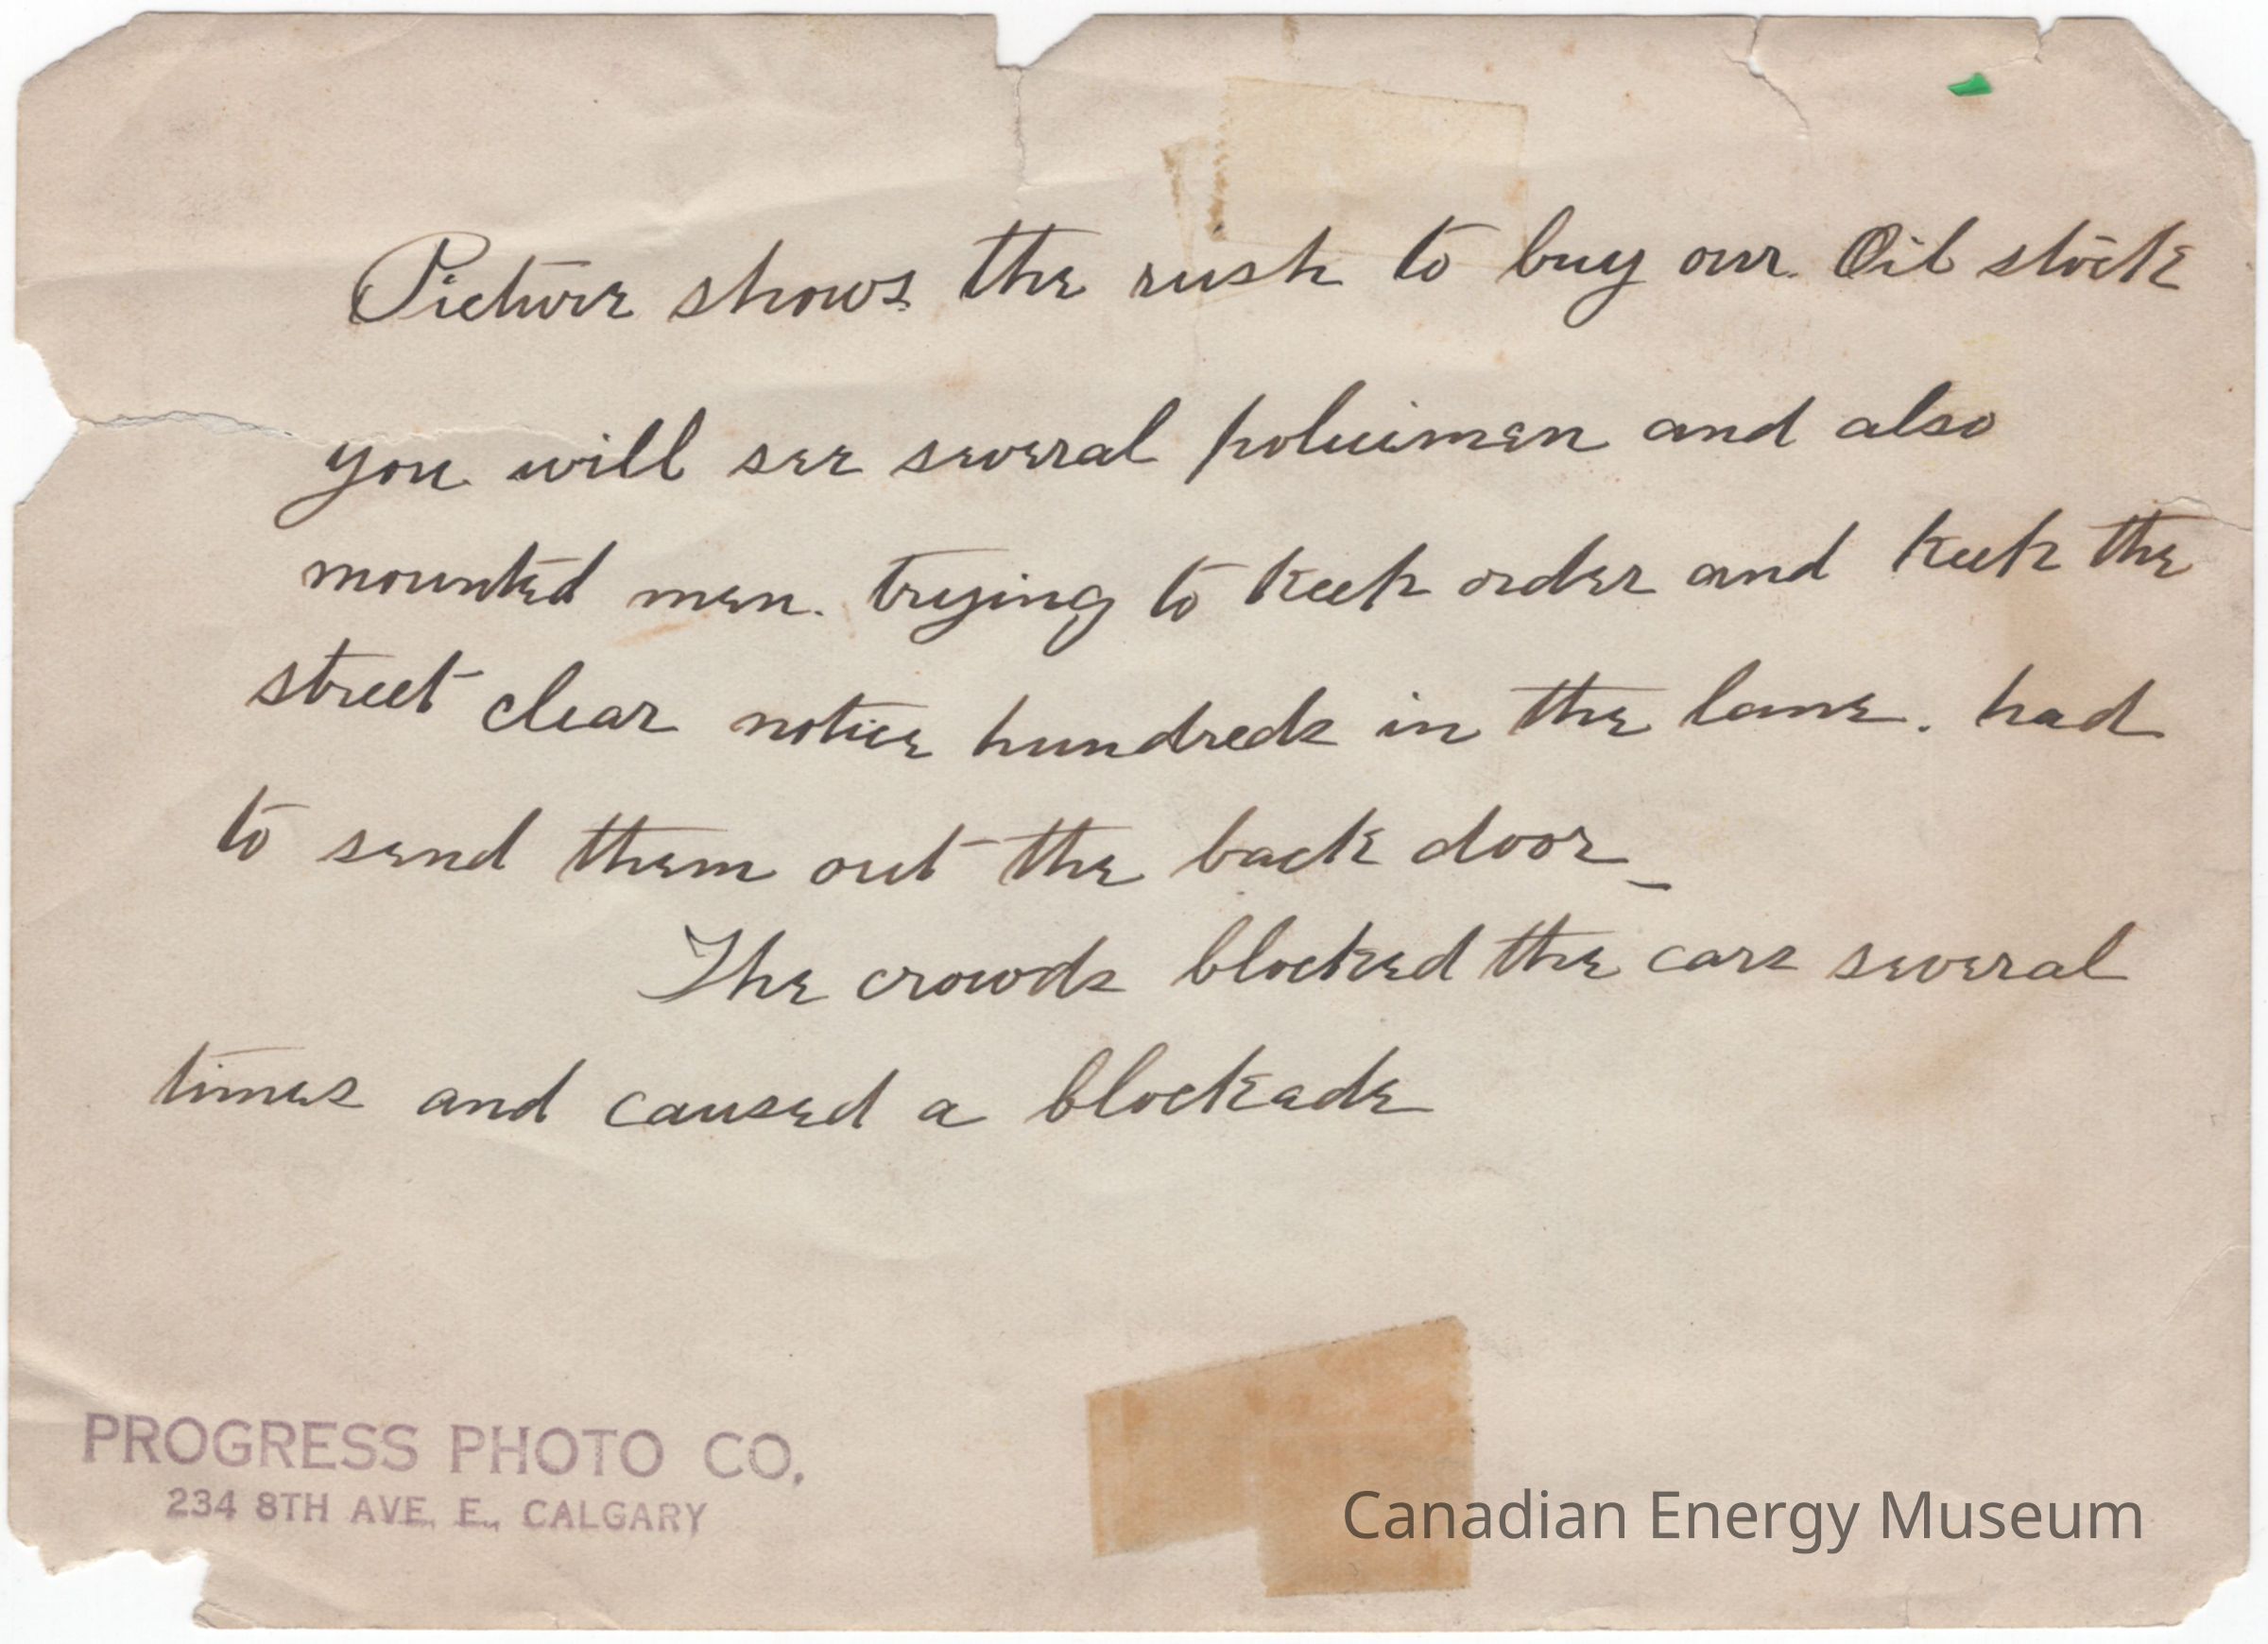 Picture shows the rush to buy our Oil stock
you will see several policimen and also
mounted men. trying to keep order and keep the
street clear notice hundreds in the lane. had
to send them out the back door_
The crowds blocked the cars several
times and caused a blockade
PROGRESS PHOTO CO.
234 8TH AVE. E., CALGARY
Canadian Energy Museum